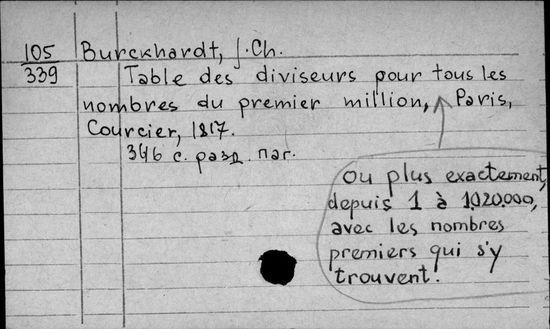 105
339
Burckhardt, J. Ch.
Table des diviseurs pour tous les
nombres du premier million, Paris,
Courcier, 1817.
346 с. разд. паг.
ou plus exactement,
depuis 1 à 1.020.000,
avec les nombres
premiers qui s'y
trouvent.